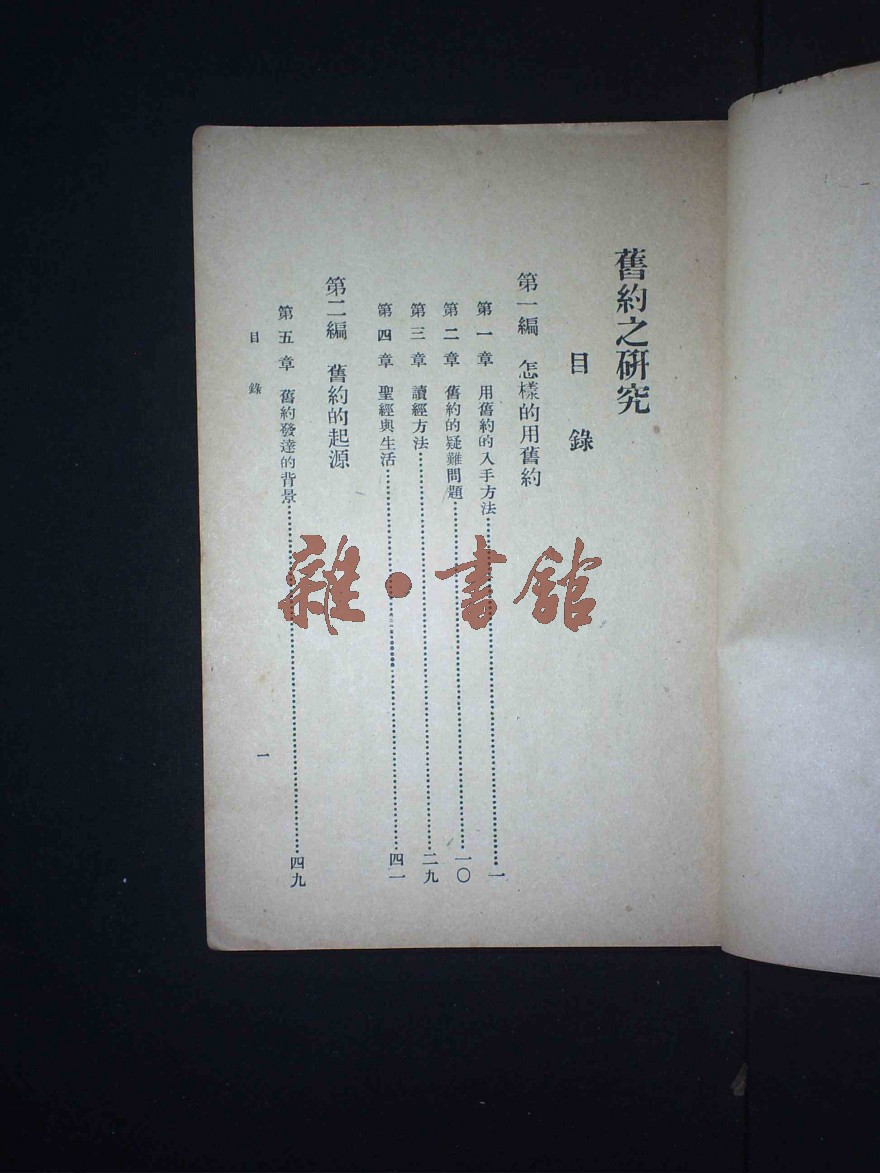 舊約之研究
目錄
第一編 怎樣的用舊約
第一章 用舊約的入手方法 一
第二章 舊約的疑難問題 一〇
第三章 讀經方法 二九
第四章 聖經與生活 四一
第二編 舊約的起源
第五章 舊約發達的背景 四九
目錄 一
雜·書館